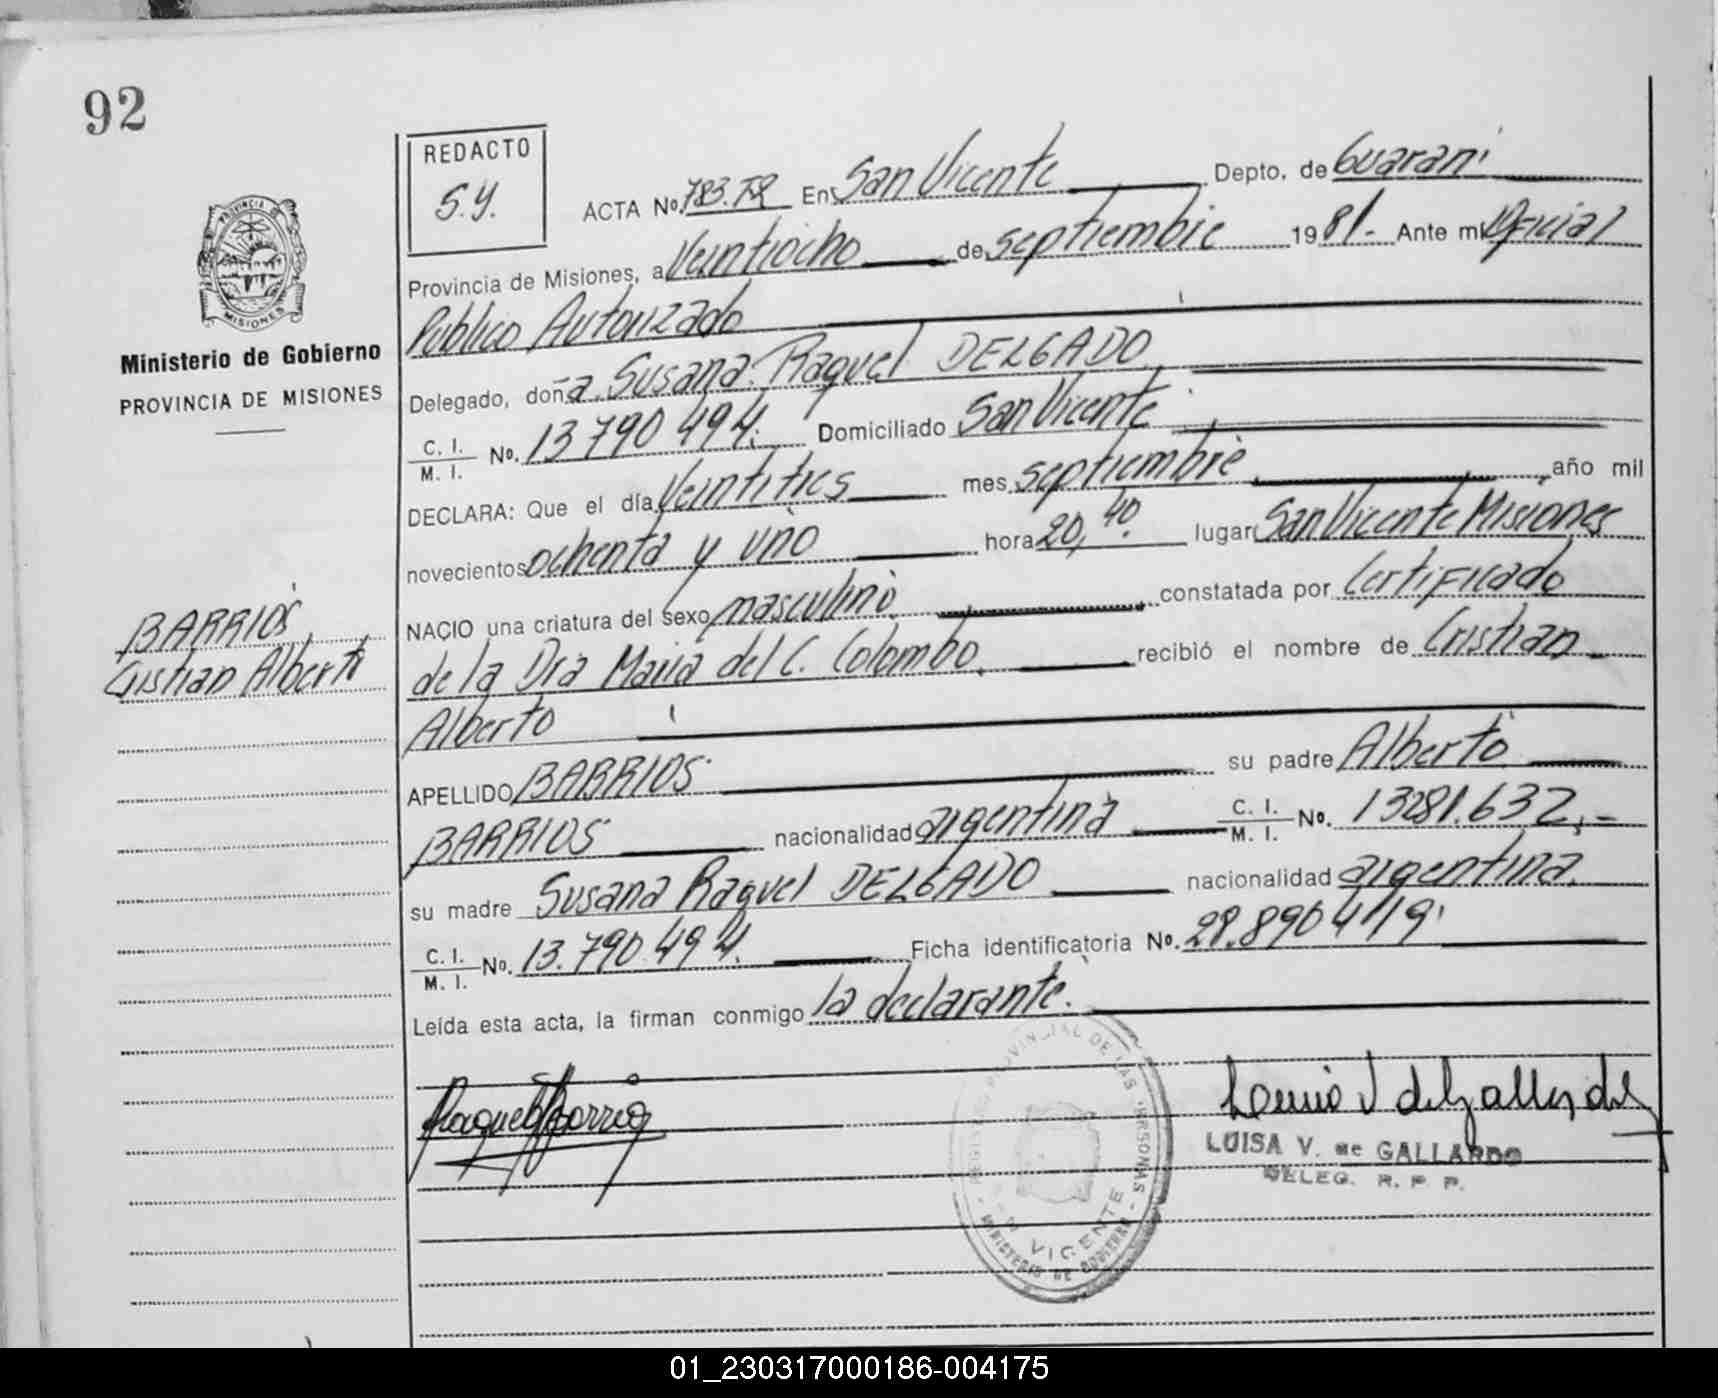 92
REDACTO
S.Y.
ACTA No. 783. En San Vicente Depto, de Guarani
Provincia de Misiones, a Veintiocho de septiembre 1981.- Ante mi Oficial
Publico Autorizado
Delegado, doña. Susana Raquel DELGADO
C. I.
M. I. No. 13.790.494. Domiciliado San Vicente
DECLARA: Que el día Veintitres mes septiembre año mil
novecientos ochenta y uno hora 20,40. lugar San Vicente Misiones
NACIO una criatura del sexo masculino constatada por Certificado
de la Dra Maria del C. Colombo. recibió el nombre de Cristian
Alberto
APELLIDO BARRIOS su padre Alberto
BARRIOS nacionalidad argentina C. I.
M. I. No. 13281.632,-
su madre Susana Raquel DELGADO nacionalidad argentina.
C. I.
M. I. No. 13.790.494. Ficha identificatoria No. 28.890419
Leída esta acta, la firman conmigo la declarante.
PROVINCIA DE
MISIONES
Ministerio de Gobierno
PROVINCIA DE MISIONES
BARRIOS,
Cristian Alberto
LUISA V. de GALLARDO
DELEG. R. P. P.
PROVINCIAL DE LAS PERSONAS
VICENTE
MINISTERIO DE GOBIERNO
01_230317000186-004175